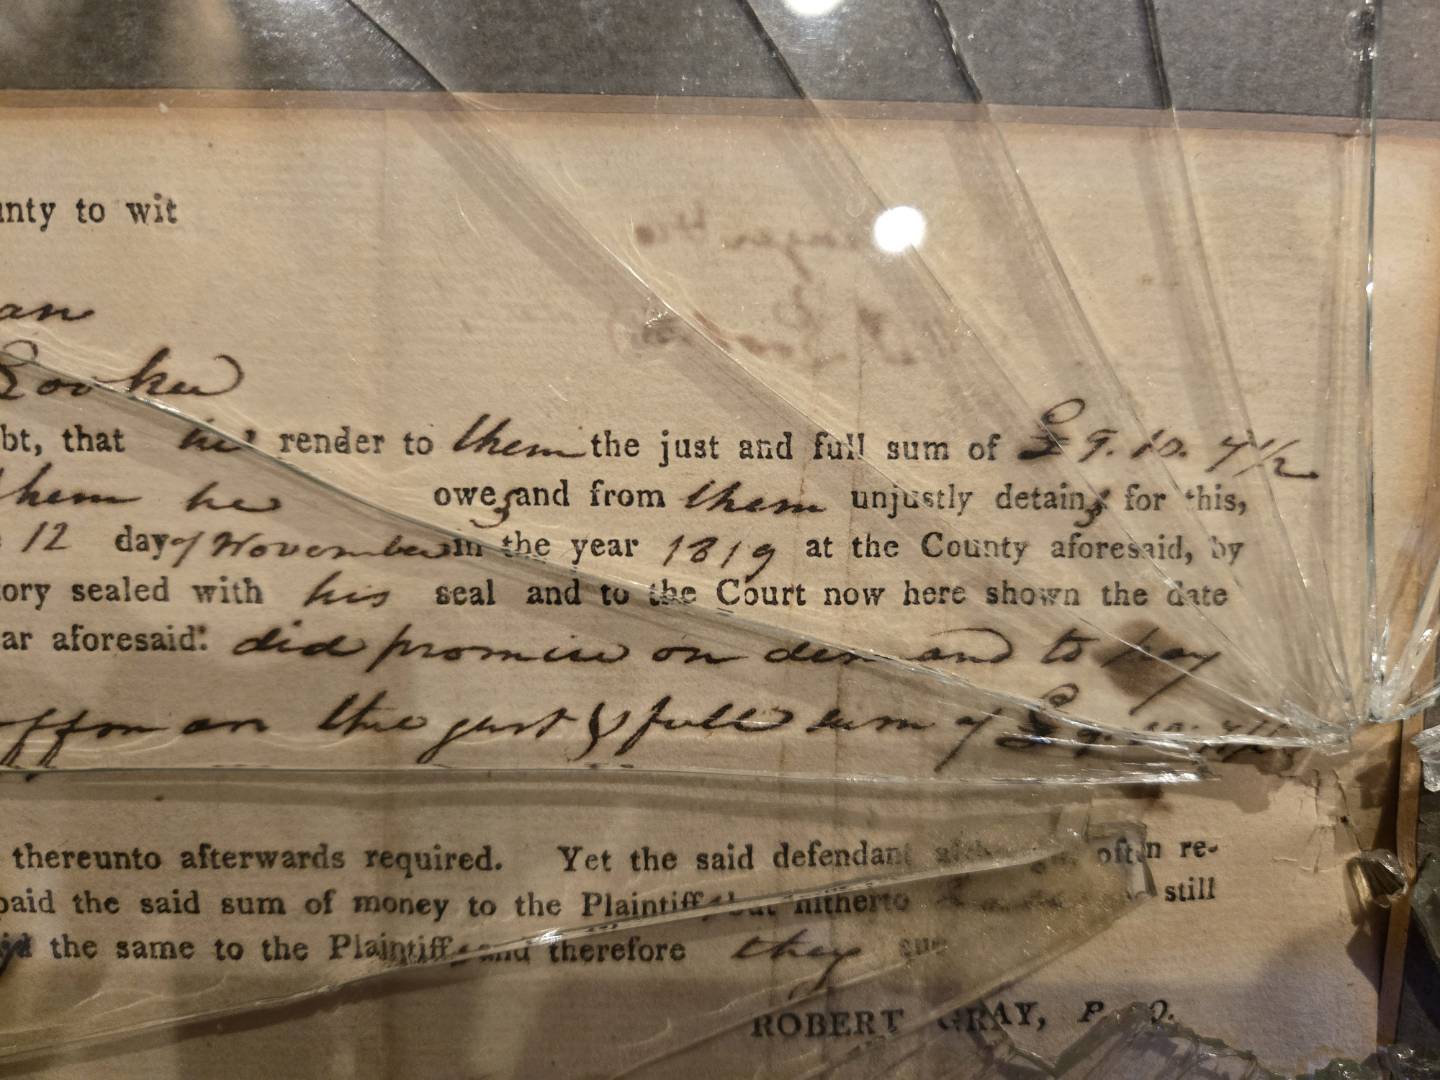 unty to wit
an
Looker
bt, that he render to them the just and full sum of £9. 10. 4½
them he owes and from them unjustly detains for this,
12 day of November in the year 1819 at the County aforesaid, by
tory sealed with his seal and to the Court now here shown the date
ar aforesaid: did promise on demand to pay
on the just & full sum of £9. 10. 4½
thereunto afterwards required. Yet the said defendant although often re-
paid the same sum of money to the Plaintiffs but hitherto still
the same to the Plaintiffs and therefore they sue
ROBERT GRAY, P. Q.